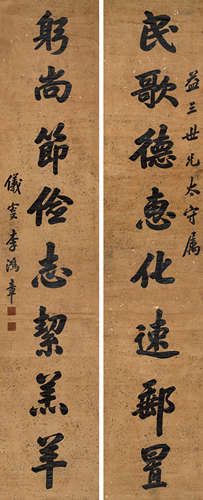 益三世兄太守属
民歌德惠化速郵置
躬尚節儉志絜羔羊
儀叟李鴻章